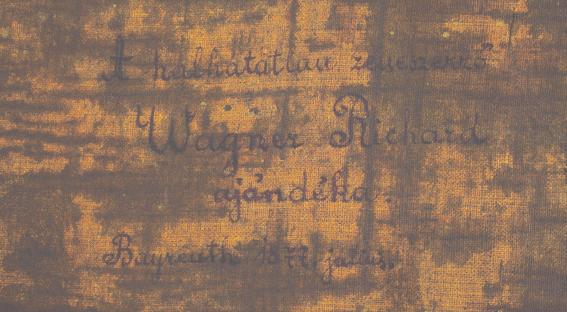 A halhatatlan zeneszerző
Wagner Richard
ajándéka.
Bayreuth 1877. julius